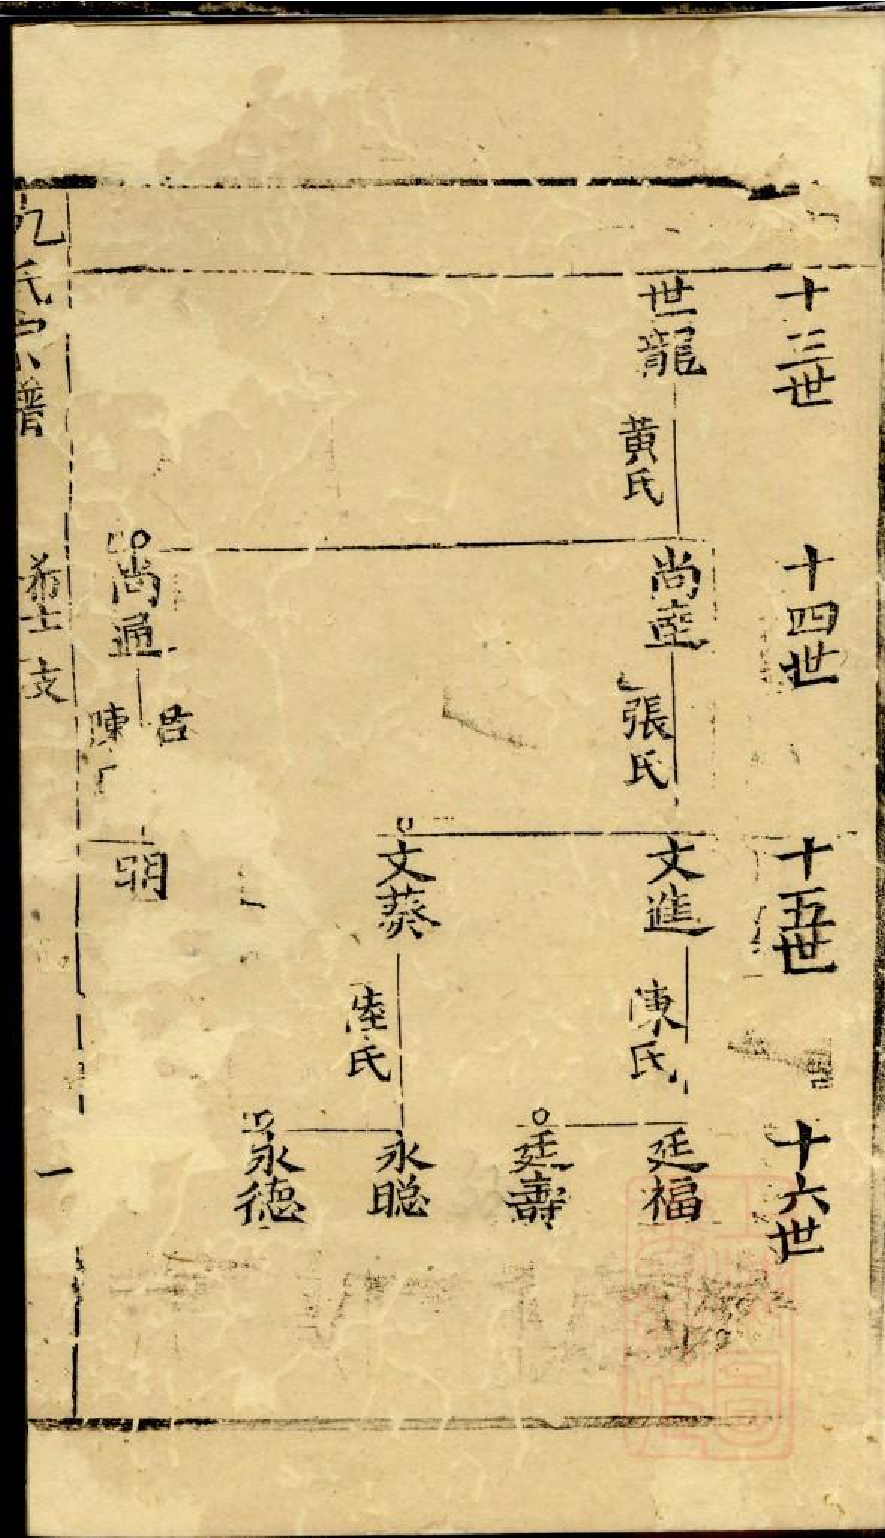 十三世
世龍
黃氏
十四世
尚陸
張氏
尚通
呂
陳
十五世
文進
陳氏
文葵
陸氏
明
十六世
廷福
廷壽
永聰
永德
氏宗譜
支
一